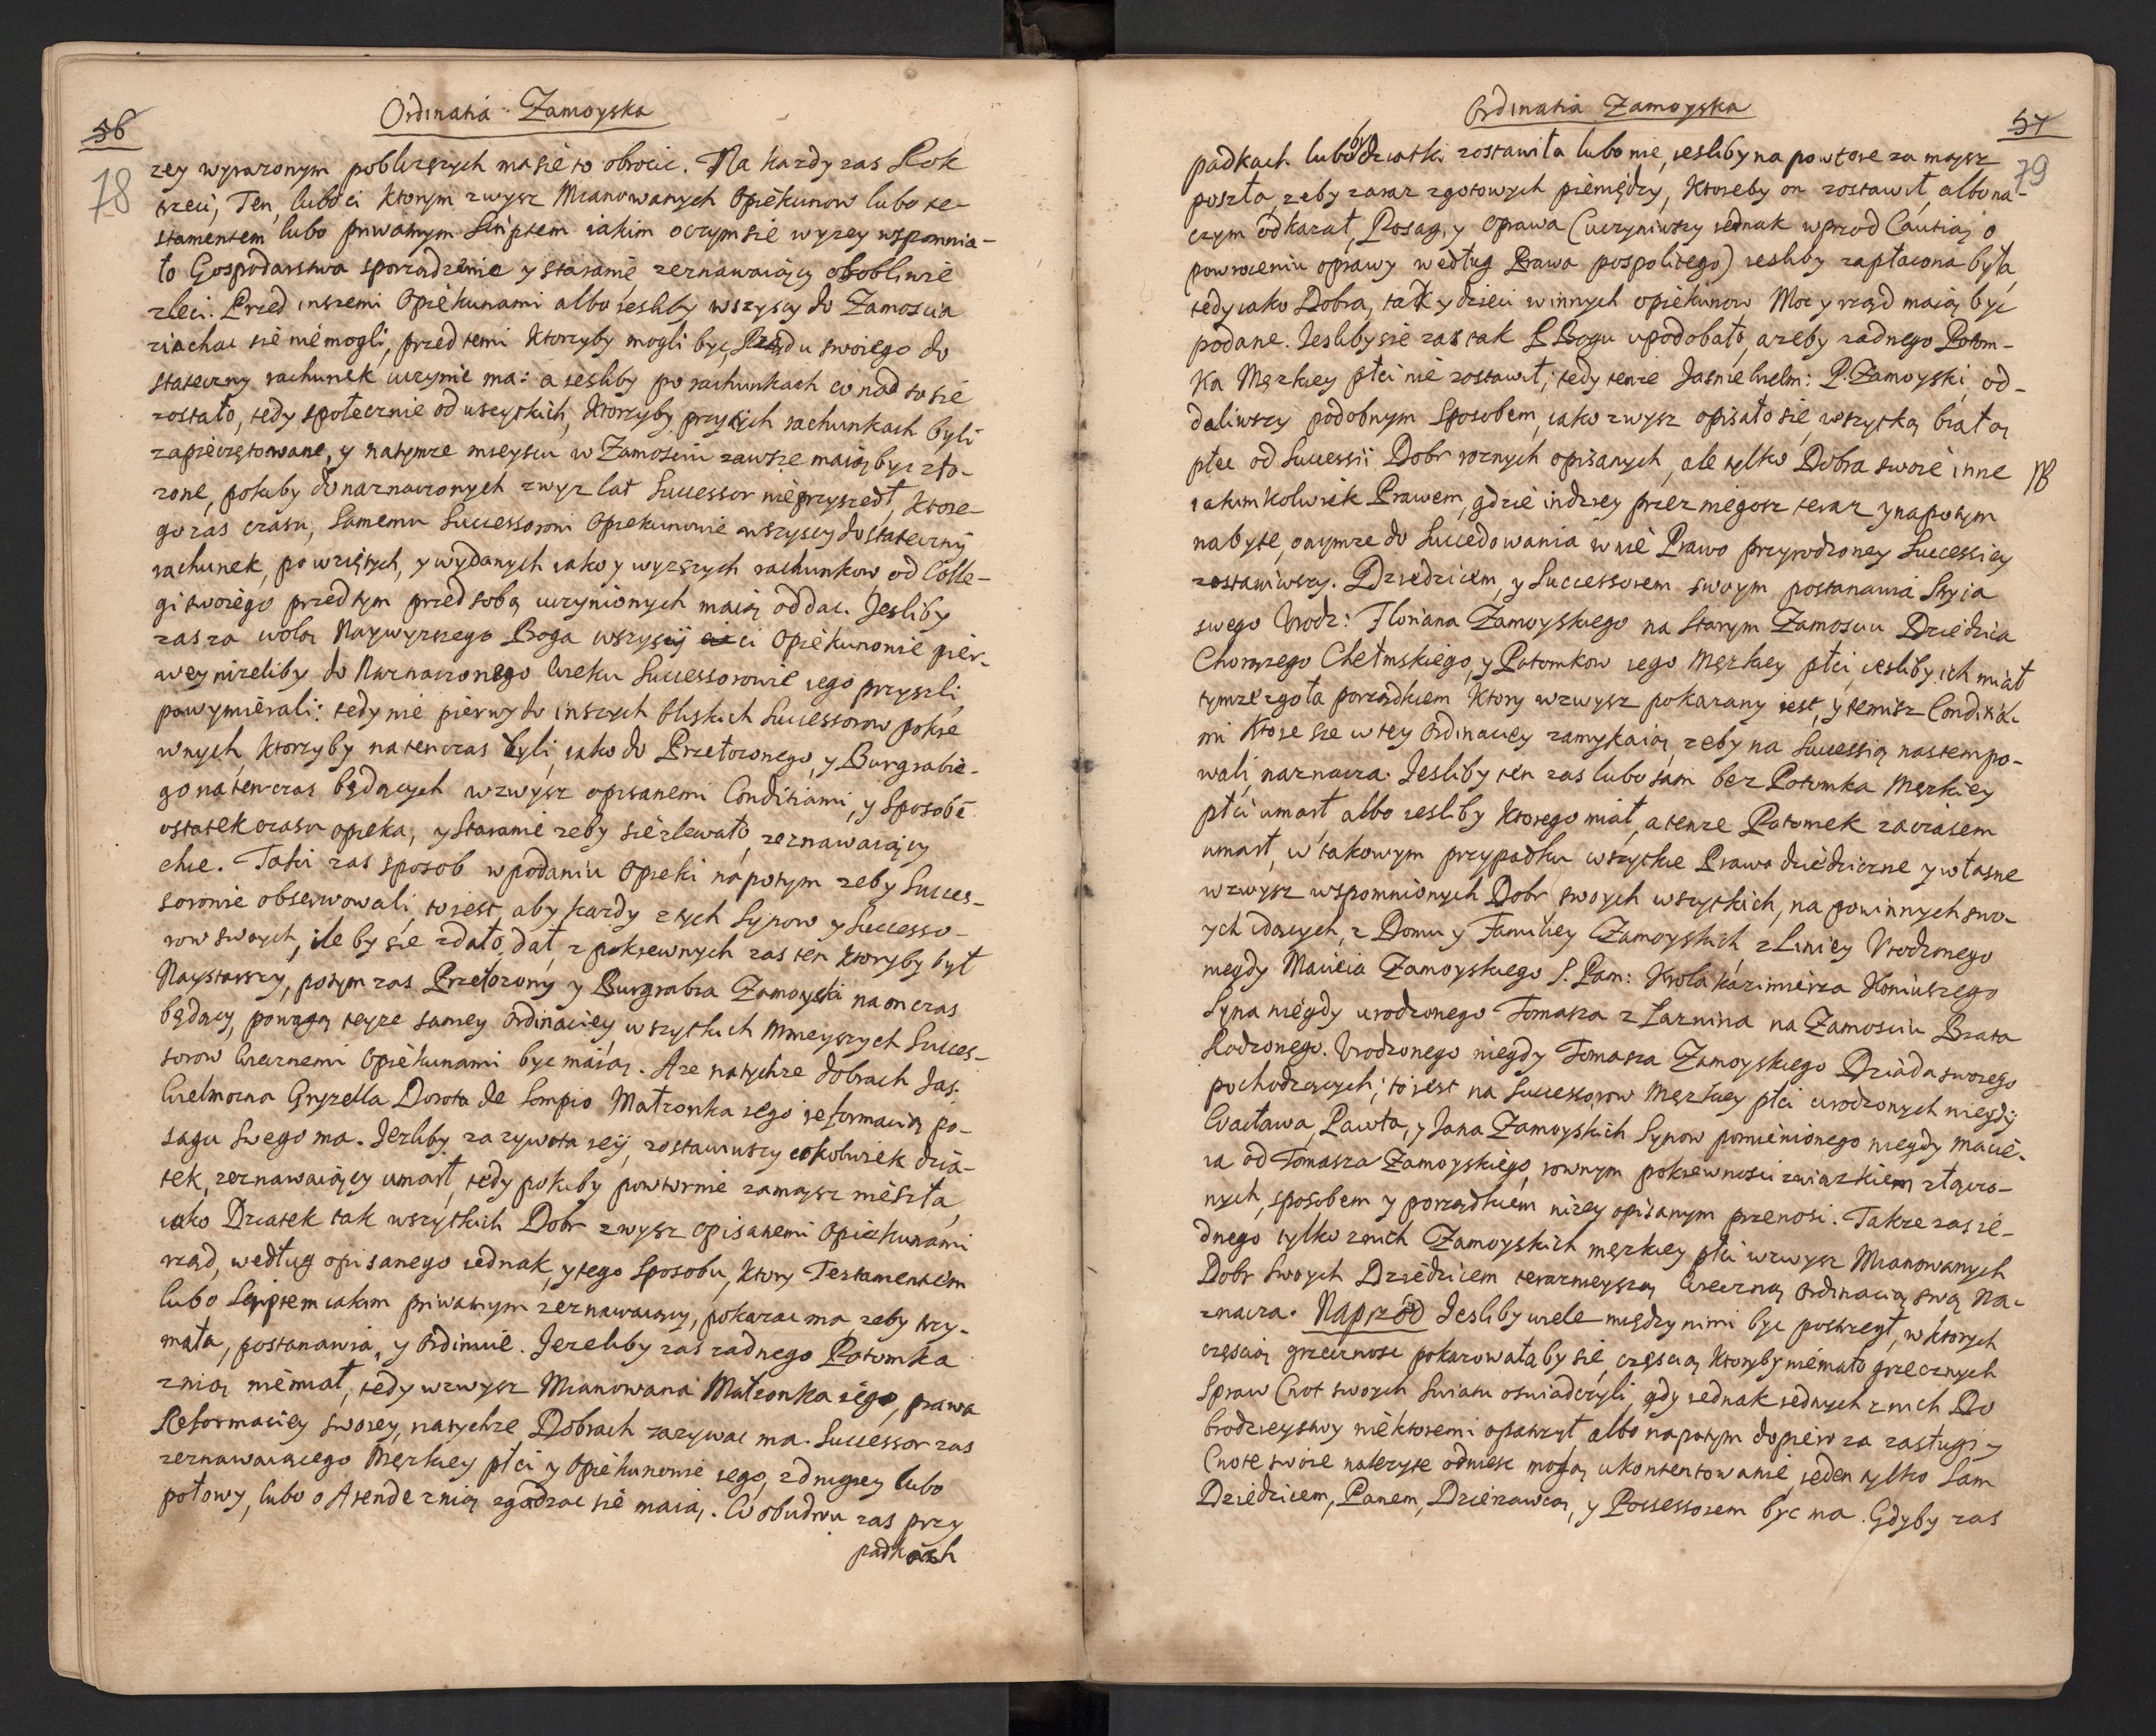 56
78
Ordinatia Zamoyska
zey wyrazonym poblizszych ma się to obrocic. Na kazdy zas Rok
trzeci, Ten, lubo ci ktorym zwysz Mianowanych Opiekunow lubo te-
stamentem lubo priwatnym Scriptem iakim o czym się wyzey wspomnia-
ło Gospodarstwa sporządzenie y staranie zeznawaiący osobliwie
zleci. Przed inszemi Opiekunami albo iesliby wszyscy do Zamoscia
ziachac się niemogli, przed temi ktorzyby mogli byc, Rządu swoiego do
stateczny rachunek uczynic ma: a iesliby po rachunkach co nad to się
zostało, tedy społecznie od wszytkich, ktorzyby przy tych rachunkach byli
zapieczętowane, y natymze mieyscu w Zamosciu zawsze maią byc zło-
zone, pokiby do naznaczonych zwyz lat Successor nieprzyszedł, ktore-
go zas czasu, Samemu Successorowi Opiekunowie wszyscy dostateczny
rachunek, powziętych, y wydanych iako y wyzszych rachunkow od Colle-
gi swoiego przedtym przed sobą uczynionych maią oddac. Jesliby
zas za wolą Naywyzszego Boga wszyscy ci Opiekunowie pier-
wey nizeliby do Naznaczonego wieku Successorowie iego przyszli,
powymierali: tedy nie pierwy do inszych bliskich Successorow pokre
wnych, ktorzyby na ten czas byli, iako do Przełozonego, y Burgrabie-
go na ten czas będących wzwysz opisanemi Conditiami, y Sposobē
ostatek czasu opieka, y Staranie zeby się zlewało, zeznawaiący
chce. Taki zas sposob w podaniu Opieki napotym zeby Succes-
sorowie obserwowali, to iest, aby kazdy z tych Synow y Successo-
row swoych, ile by się zdało, dał, z pokrewnych zas ten ktoryby był
Naystarszy, potym zas Przełozony y Burgrabia Zamoyski na on czas
będący, powagą teyze samey Ordinaciey, wszytkich Mnieyszych Succes-
sorow wiecznemi Opiekunami byc maią. A ze natychze dobrach Jas:
Wielmozna Gryzella Dorota de Sompio Małzonka iego reformacią po-
sagu swego ma. Jezliby za zywota iey, zostawiwszy cokolwiek dzia-
tek, zeznawaiący umarł, tedy pokiby powtornie zamąsz nieszła,
iako Dziatek tak wszytkich Dobr zwysz opisanemi Opiekunami
rząd, według opisanego iednak, y tego Sposobu, ktory Testamentem
lubo Scriptem iakim priwatnym zeznawaiący, pokazac ma, zeby trzy-
mała, postanawia, y Ordinuie. Jezeliby zas zadnego Potomka
z nią niemiał, tedy wzwysz Mianowana Małzonka iego, prawa
Reformaciey swoiey, natychze Dobrach zazywac ma. Successor zas
zeznawaiącego Męzkiey płci y Opiekunowie iego, z drugiey lubo
połowy, lubo o Arendę z nią zgadzac się maią. W obudwu zas przy
padkach
57
79
Ordinatia Zamoyska
padkach luboby dziatki zostawiła lubo nie, iesliby na powtore za mąsz
poszła, zeby zaraz z gotowych pieniędzy, ktoreby on zostawił, albo na-
czym odkazał, Posag, y Oprawa (uczyniwszy iednak wprzod Cautią o
powroceniu oprawy według Prawa pospolitego) iesliby zapłacona była,
tedy iako Dobra, tak y dzieci w innych opiekunow Moc y rząd maią byc
podane. Jesliby sie zas tak P. Bogu upodobało, azeby zadnego Potom-
ka Męzkiey płci nie zostawił, tedy tenze Jasnie Wielm: P. Zamoyski, od-
daliwszy podobnym Sposobem, iako zwysz opisało się, wszytką białą
płec od Successii Dobr roznych opisanych, ale tylko Dobra swoie inne
iakimkolwiek Prawem, gdzie indziey przez niegosz teraz y napotym
nabyte, onymze do Succedowania w nie Prawo przyrodzoney Successiey
zostawiwszy. Dziedzicem, y Successorem swoym postanawia Stryia
swego Urodz: Floriana Zamoyskiego na Starym Zamosciu Dziedzica
Chorązego Chełmskiego, y Potomkow iego Męzkiey płci, iesliby ich miał
tymze zgoła porządkiem ktory wzwysz pokazany iest, y temisz Conditia-
mi ktore się w tey Ordinaciey zamykaią, zeby na Successią nastempo-
wali, naznacza. Jesliby ten zas lubo sam bez Potomka Męzkiey
płci umarł albo iesliby ktorego miał, a tenze Potomek zaczasem
umarł, w takowym przypadku wszytkie Prawo dziedziczne y własne
wzwysz wspomnionych Dobr swoych wszytkich, na powinnych swo-
ych idących, z Domu y Familiey Zamoyskich, z Liniey Urodzonego
niegdy Macieia Zamoyskiego S. Pam: Krola Kazimierza Koniuszego
Syna niegdy urodzonego Tomasza z Łaznina na Zamosciu Brata
Rodzonego. Urodzonego niegdy Tomasza Zamoyskiego Dziada swoiego
pochodzących; to iest na Successorow Męzkiey płci urodzonych niegdy
Wacława, Pawła, y Jana Zamoyskich Synow pomienionego niegdy Macie-
ia od Tomasza Zamoyskiego, rownym pokrewnosci związkiem złączo-
nych, sposobem y porządkiem nizey opisanym przenosi. Takze zas ie-
dnego tylko z nich Zamoyskich męzkiey płci wzwysz Mianowanych
Dobr swoych Dziedzicem terazmeyszą wieczną Ordinacią swą na-
znacza. Naprzod Jesliby wiele między nimi byc postrzegł, w ktorych
częscią grzecznosc pokazowałaby się, częscią ktorzyby niemało grzecznych
Spraw Cnot swoych Swiatu oswiadczyli, gdy iednak iednych z nich Do
brodzieystwy niektoremi opatrzył albo napotym dopiero za zasługi y
Cnote swoie nalezyte odniesc mogą ukontentowanie, ieden tylko Sam
Dziedzicem, Panem, Dzierzawcą, y Possessorem byc ma. Gdyby zas